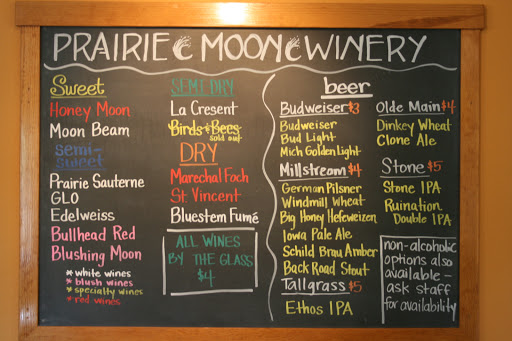 PRAIRIE MOON WINERY
Sweet
Honey Moon
Moon Beam
semi-
sweet
Prairie Sauterne
GLO
Edelweiss
Bullhead Red
Blushing Moon
* white wines
* blush wines
* specialty wines
* red wines
SEMI DRY
La Cresent
Birds & Bees
sold out
DRY
Marechal Foch
St Vincent
Bluestem Fumé
ALL WINES
BY THE GLASS
$4
beer
Budweiser $3
Budweiser
Bud Light
Mich Golden Light
Millstream $4
German Pilsner
Windmill Wheat
Big Honey Hefeweizen
Iowa Pale Ale
Schild Brau Amber
Back Road Stout
Tallgrass $5
Ethos IPA
Olde Main $4
Dinkey Wheat
Clone Ale
Stone $5
Stone IPA
Ruination
Double IPA
non-alcoholic
options also
available –
ask staff
for availability